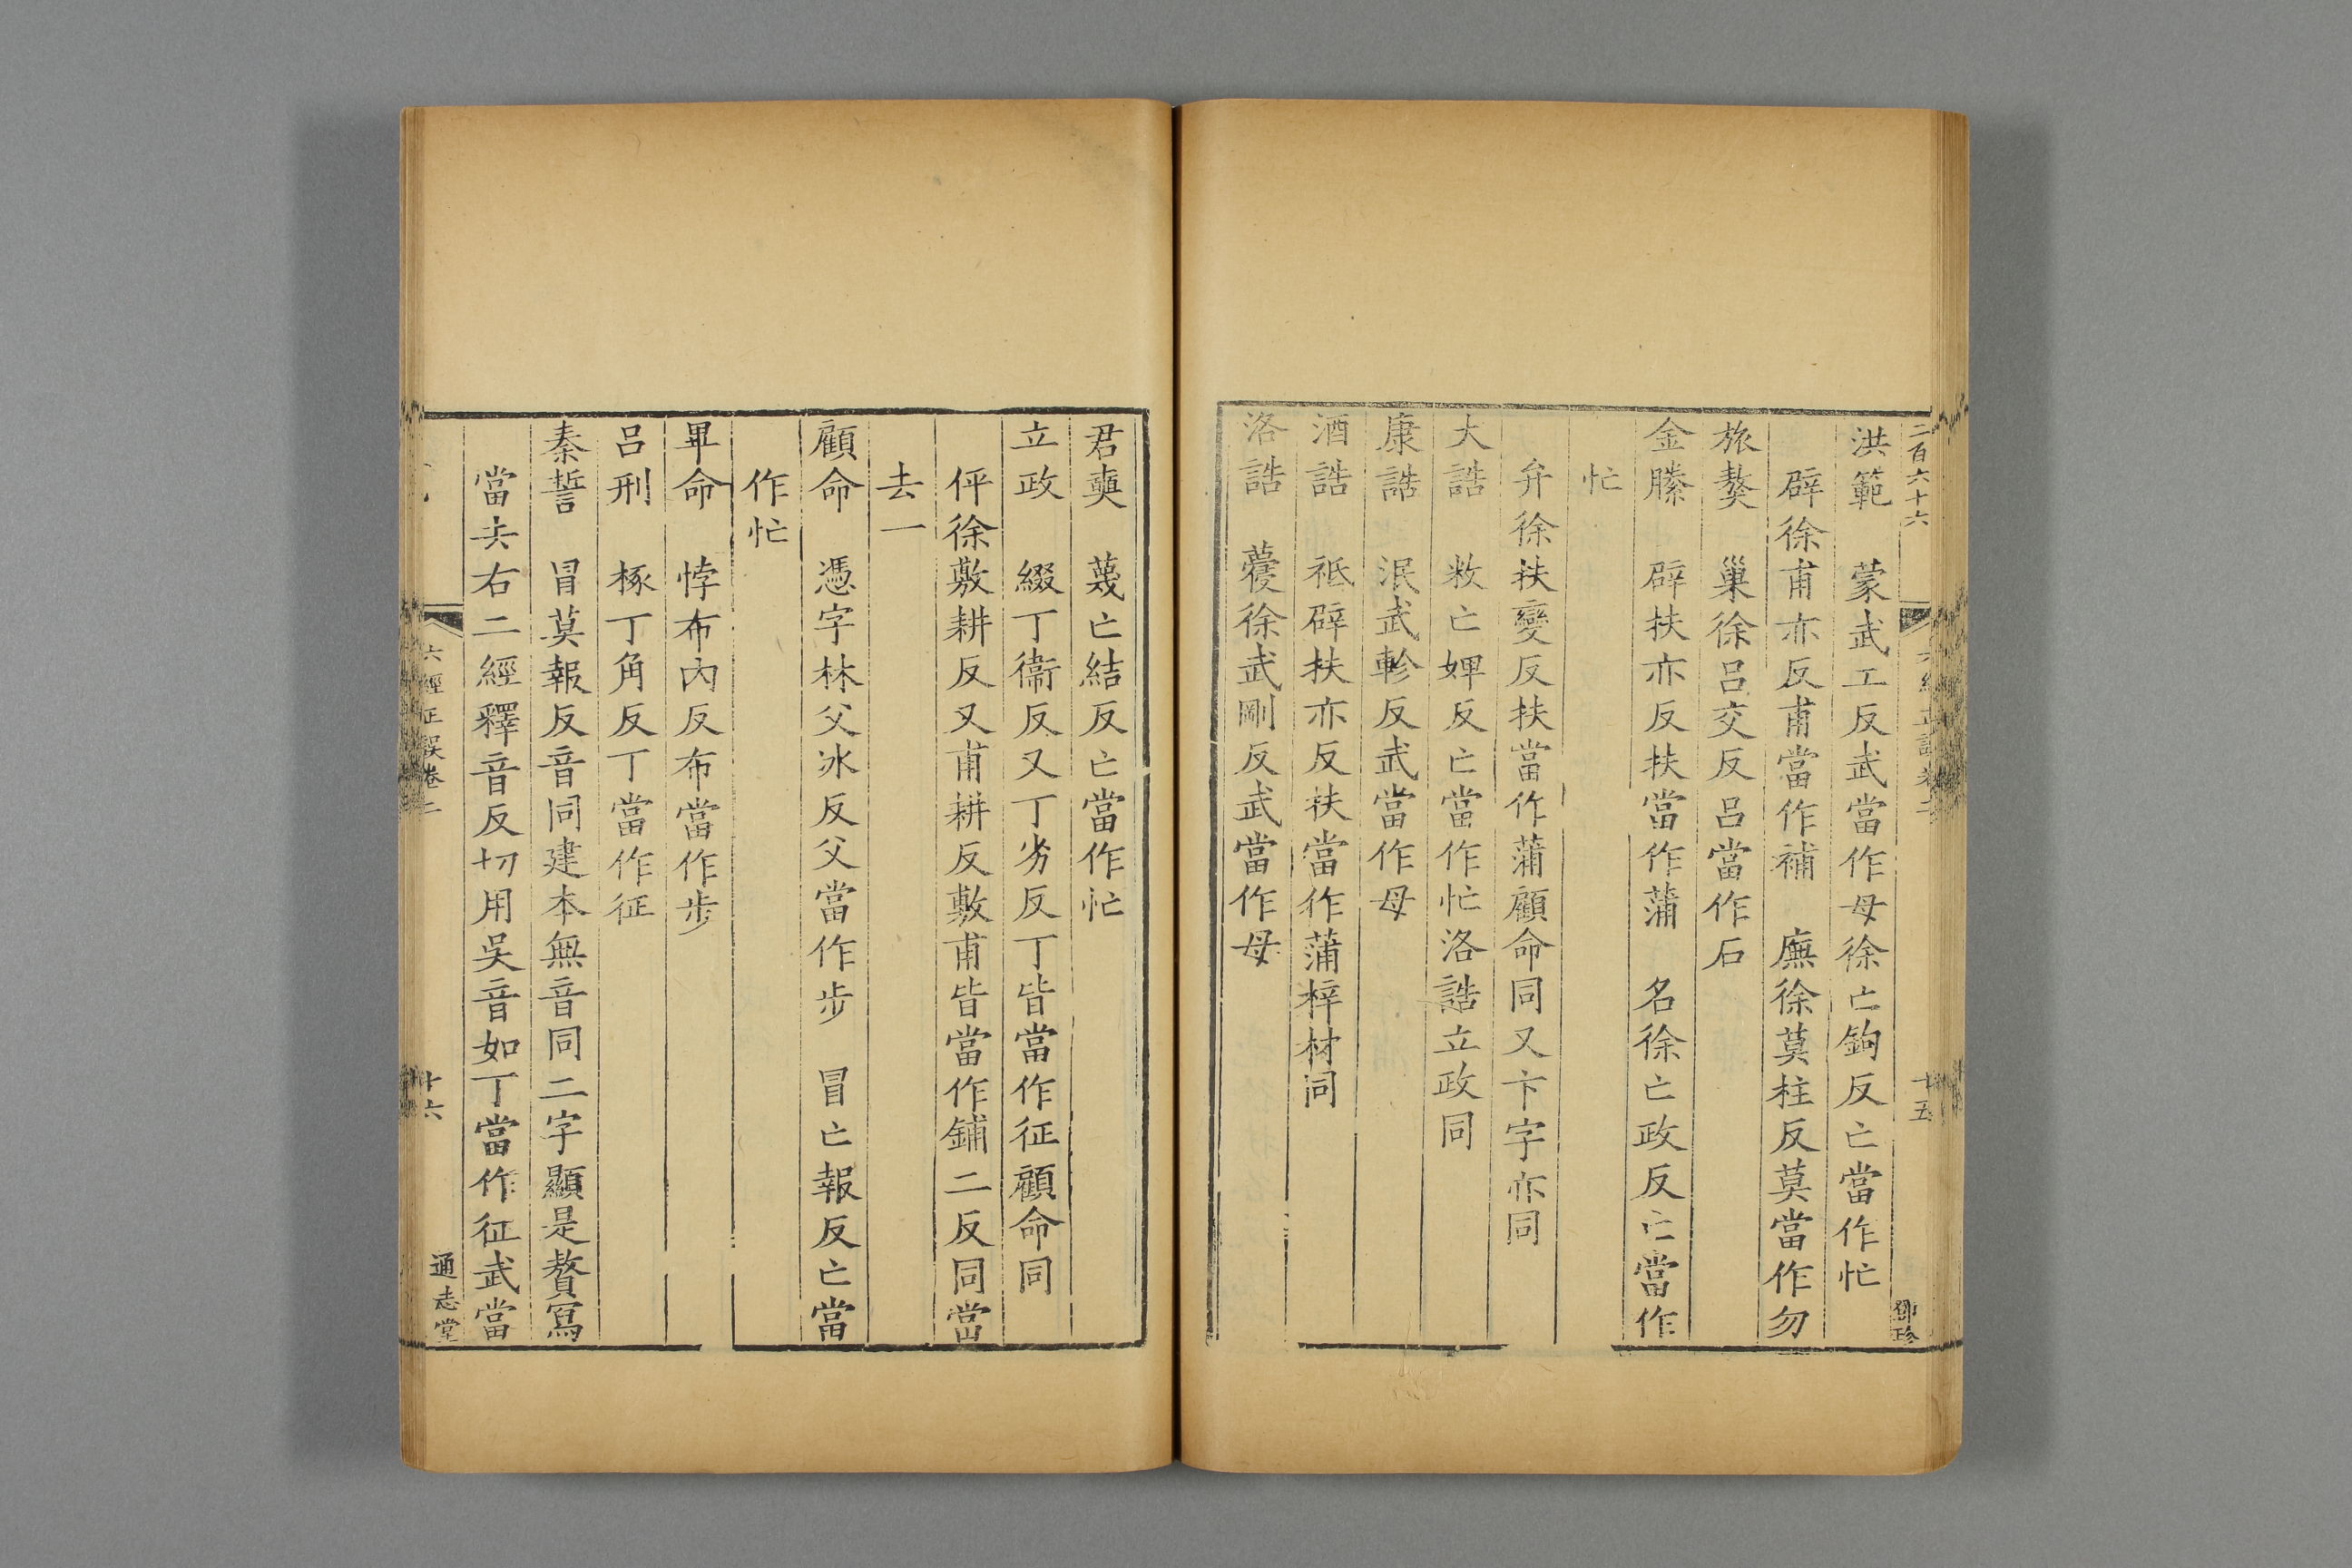 二百六十六
十五
鄧珍
洪範　蒙武工反武當作母徐亡鉤反亡當作忙
辟徐甫亦反甫當作補　廡徐莫柱反莫當作勿
旅獒　巢徐呂交反呂當作石
金縢　辟扶亦反扶當作蒲　名徐亡政反亡當作
忙
弁徐扶變反扶當作蒲顧命同又卞字亦同
大誥　敉亡婢反亡當作忙洛誥立政同
康誥　泯武軫反武當作母
酒誥　祗辟扶亦反扶當作蒲梓材同
洛誥　徐武剛反武當作母
君奭　蔑亡結反亡當作忙
立政　綴丁衞反又丁劣反丁皆當作征顧命同
伻徐敷耕反又甫耕反敷甫皆當作鋪二反同當
去一
顧命　憑字林父冰反父當作步　冒亡報反亡當
作忙
畢命　悖布內反布當作步
呂刑　椓丁角反丁當作征
秦誓　冒莫報反音同建本無音同二字顯是贅寫
當去右二經釋音反切用吳音如丁當作征武當
六經正誤卷二
十六
通志堂